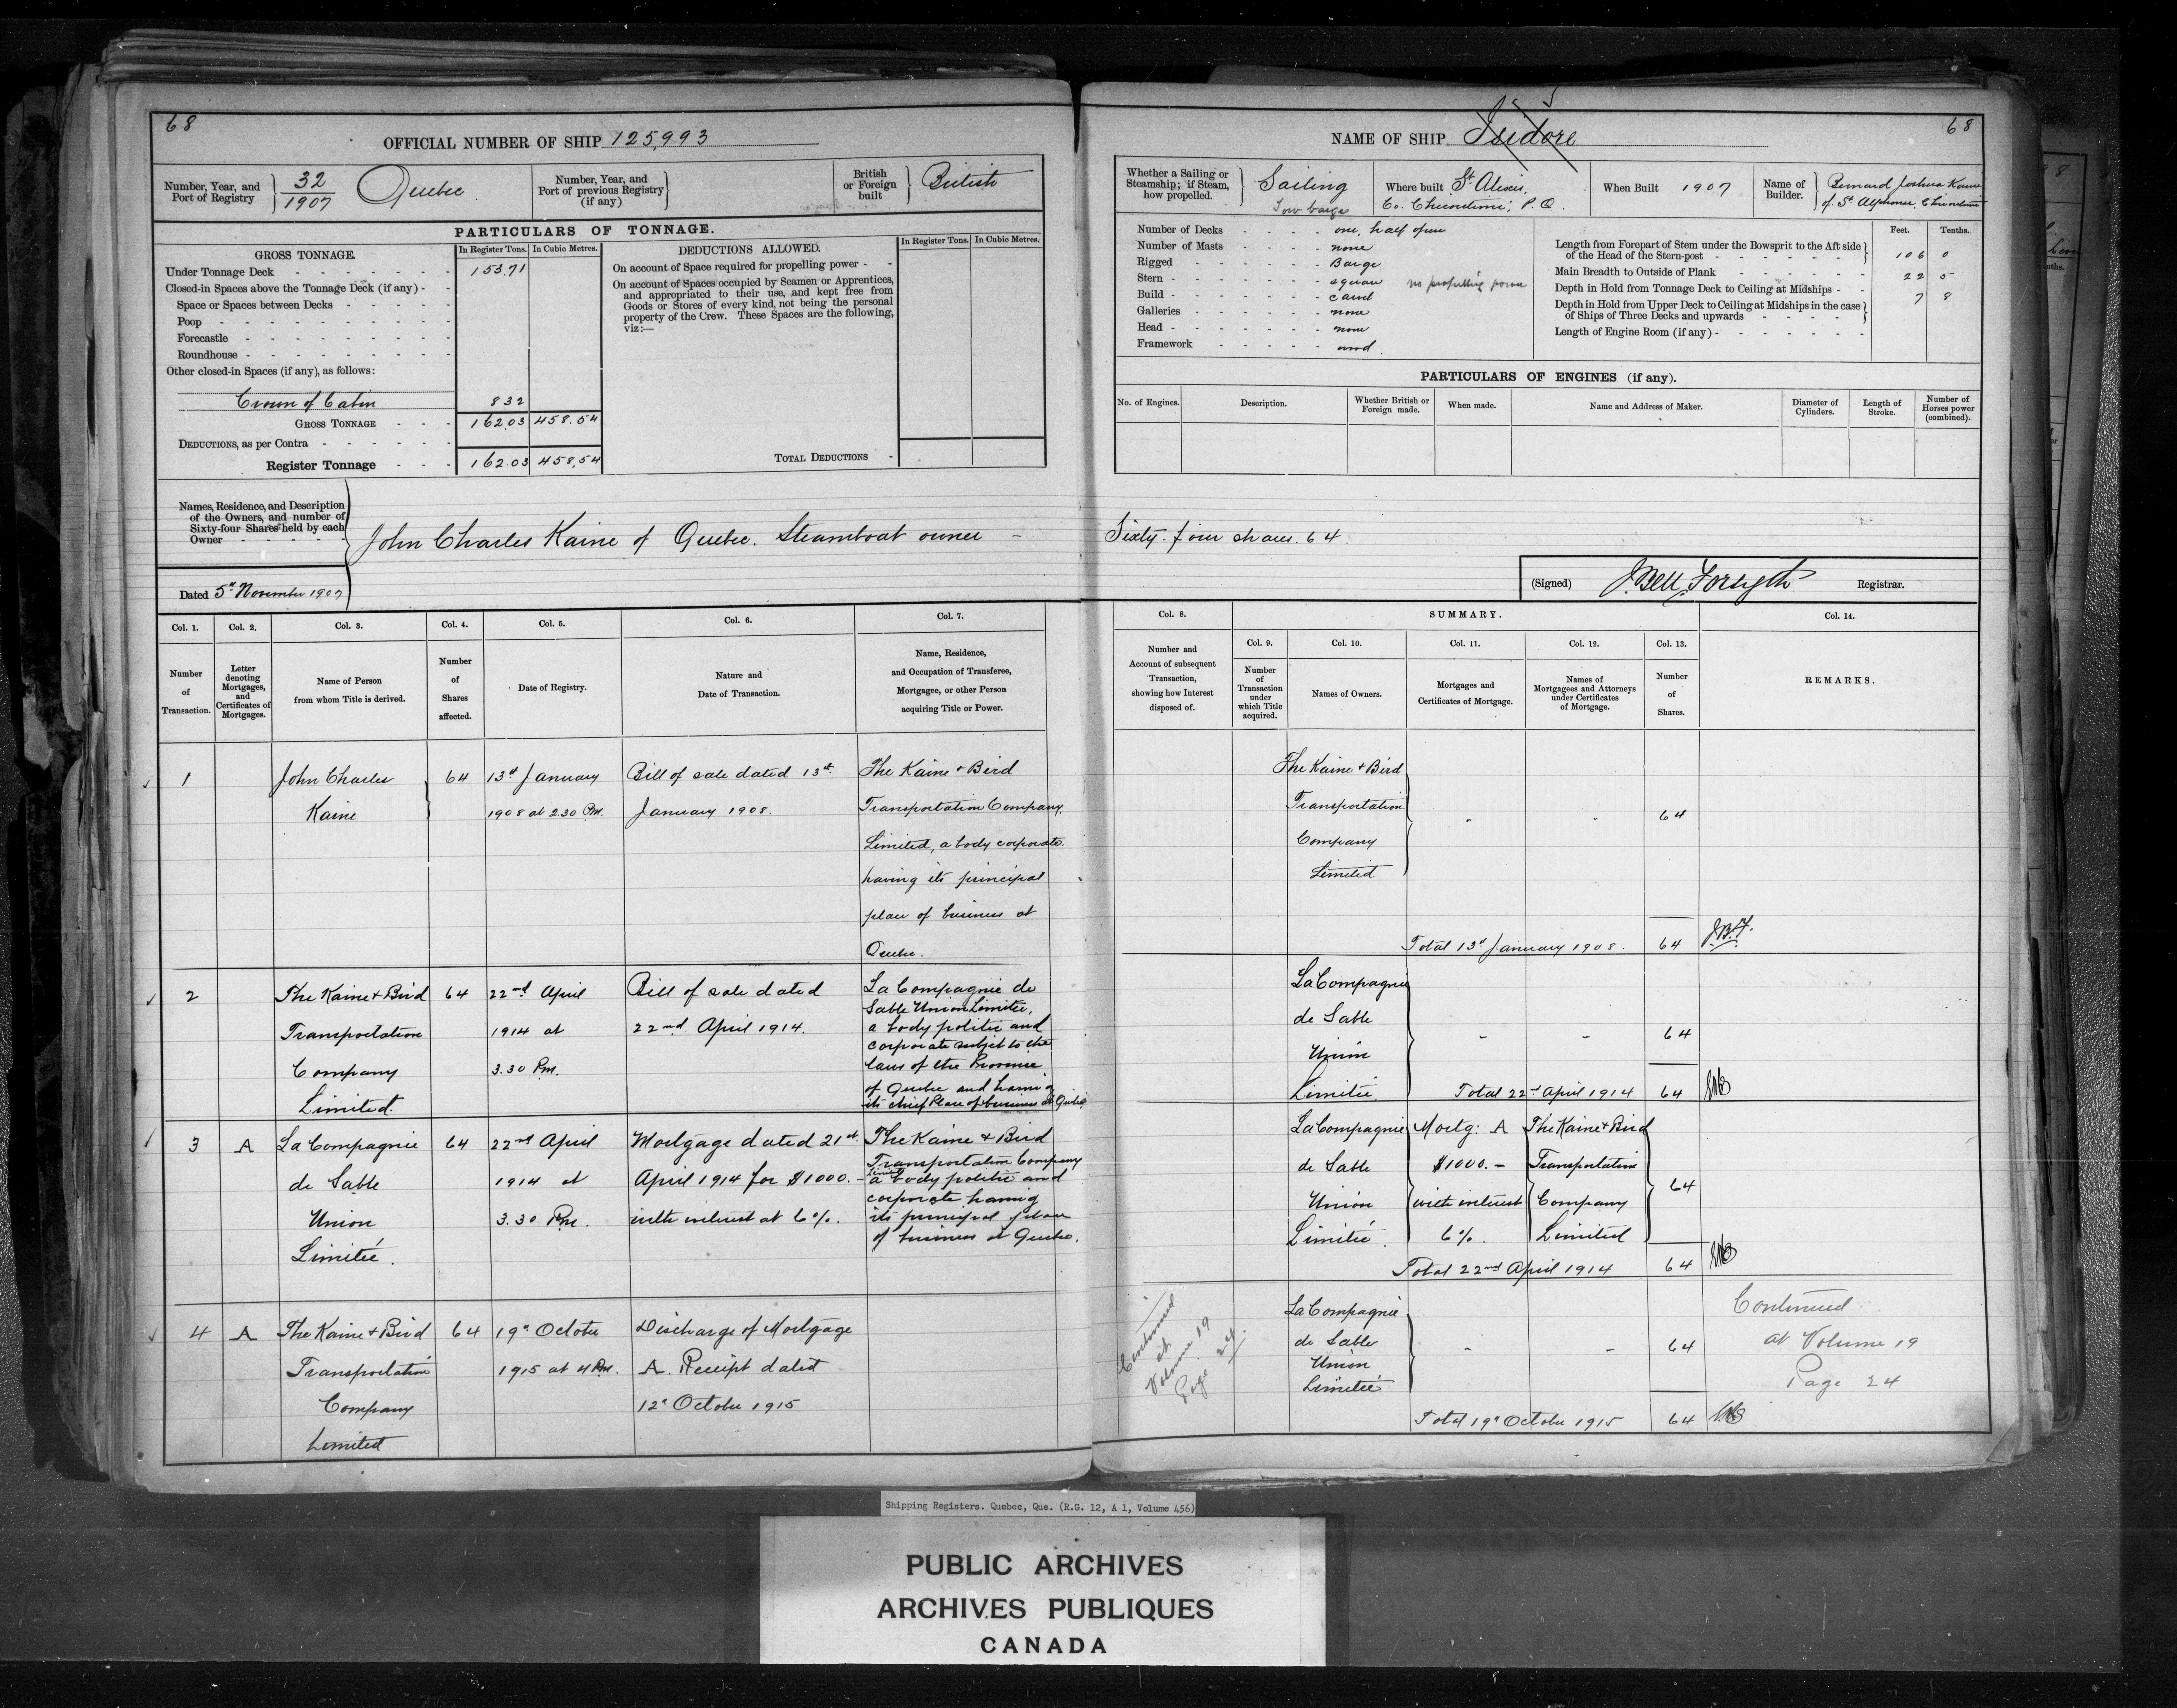 68
OFFICIAL NUMBER OF SHIP 125,993
Number, Year, and Port of Registry 32/1907 Quebec
Number, Year, and Port of previous Registry (if any)
British or Foreign built British
PARTICULARS OF TONNAGE.
GROSS TONNAGE.
In Register Tons. In Cubic Metres.
Under Tonnage Deck 153.71
Closed-in Spaces above the Tonnage Deck (if any)
Space or Spaces between Decks
Poop
Forecastle
Roundhouse
Other closed-in Spaces (if any), as follows:
Crown of Cabin 832
GROSS TONNAGE 162.03 458.54
DEDUCTIONS, as per Contra
Register Tonnage 162.03 458,54
DEDUCTIONS ALLOWED.
In Register Tons. In Cubic Metres.
On account of Space required for propelling power
On account of Spaces occupied by Seamen or Apprentices,
and appropriated to their use, and kept free from
Goods or Stores of every kind, not being the personal
property of the Crew. These Spaces are the following,
viz:—
TOTAL DEDUCTIONS
Names, Residence, and Description
of the Owners, and number of
Sixty-four Shares held by each
Owner
John Charles Kaine of Quebec. Steamboat owner –
Dated 5th November 1907
Col. 1. Col. 2. Col. 3. Col. 4. Col. 5. Col. 6. Col. 7.
Number of Transaction.
Letter denoting Mortgages, and Certificates of Mortgages.
Name of Person from whom Title is derived.
Number of Shares affected.
Date of Registry.
Nature and Date of Transaction.
Name, Residence, and Occupation of Transferee, Mortgagee, or other Person acquiring Title or Power.
1 John Charles 64 13th January Bill of sale dated 13th The Kaine + Bird
Kaine 1908 at 2.30 P.M. January 1908. Transportation Company,
Limited, a body corporate
having its principal
place of business at
Quebec.
2 The Kaine + Bird 64 22nd April Bill of sale dated La Compagnie de
Sable Union Limitée,
Transportation 1914 at 22nd April 1914. a body politic and
corporate subject to the
Company 3.30 P.M. laws of the Province
of Quebec and having
Limited. its chief Place of business at Quebec
3 A La Compagnie 64 22nd April Mortgage dated 21st The Kaine & Bird
Transportation Company
Limited
de Sable 1914 at April 1914 for $1000.– a body politic and
corporate having
Union 3.30 P.M. with interest at 6%. its principal place
of business at Quebec.
Limitée.
4 A The Kaine + Bird 64 19th October Discharge of Mortgage
Transportation 1915 at 4 P.M. A. Receipt dated
Company 12th October 1915
Limited
68
NAME OF SHIP Isidore
Whether a Sailing or Steamship; if Steam, how propelled. Sailing
Tow barge
Where built St. Alexis,
Co. Chicoutimi, P.Q.
When Built 1907
Name of Builder. Bernard Joshua Kaine
of St. Alphonse, Chicoutimi
Number of Decks one, half open
Number of Masts none
Rigged Barge
Stern square no propelling power
Build carvel
Galleries none
Head none
Framework wood.
Feet. Tenths.
Length from Forepart of Stem under the Bowsprit to the Aft side of the Head of the Stern-post 106 0
Main Breadth to Outside of Plank 22 5
Depth in Hold from Tonnage Deck to Ceiling at Midships 7 8
Depth in Hold from Upper Deck to Ceiling at Midships in the case of Ships of Three Decks and upwards
Length of Engine Room (if any)
PARTICULARS OF ENGINES (if any).
No. of Engines. Description. Whether British or Foreign made. When made. Name and Address of Maker. Diameter of Cylinders. Length of Stroke. Number of Horses power (combined).
Sixty-four shares. 64.
(Signed) J. Bell Forsyth Registrar.
Col. 8. SUMMARY. Col. 14.
Col. 9. Col. 10. Col. 11. Col. 12. Col. 13.
Number and Account of subsequent Transaction, showing how Interest disposed of.
Number of Transaction under which Title acquired.
Names of Owners.
Mortgages and Certificates of Mortgage.
Names of Mortgagees and Attorneys under Certificates of Mortgage.
Number of Shares.
REMARKS.
The Kaine + Bird
Transportation 64
Company
Limited
Total 13th January 1908. 64 J.B.F.
La Compagnie
de Sable - - 64
Union
Limitée. Total 22nd April 1914 64
La Compagnie Mortg: A The Kaine + Bird
de Sable $1000.– Transportation 64
Union with interest Company
Limitée. 6%. Limited
Total 22nd April 1914 64
Continued at Volume 19 Page 24.
La Compagnie
de Sable - - 64
Union
Limitée
Total 19th October 1915 64
Continued
at Volume 19
Page 24
Shipping Registers. Quebec, Que. (R.G. 12, A 1, Volume 456)
PUBLIC ARCHIVES
ARCHIVES PUBLIQUES
CANADA